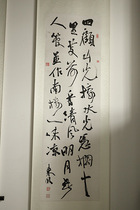 四顧山光接水光憑欄十
里芰荷香清風明月無
人管並作南樓一味涼